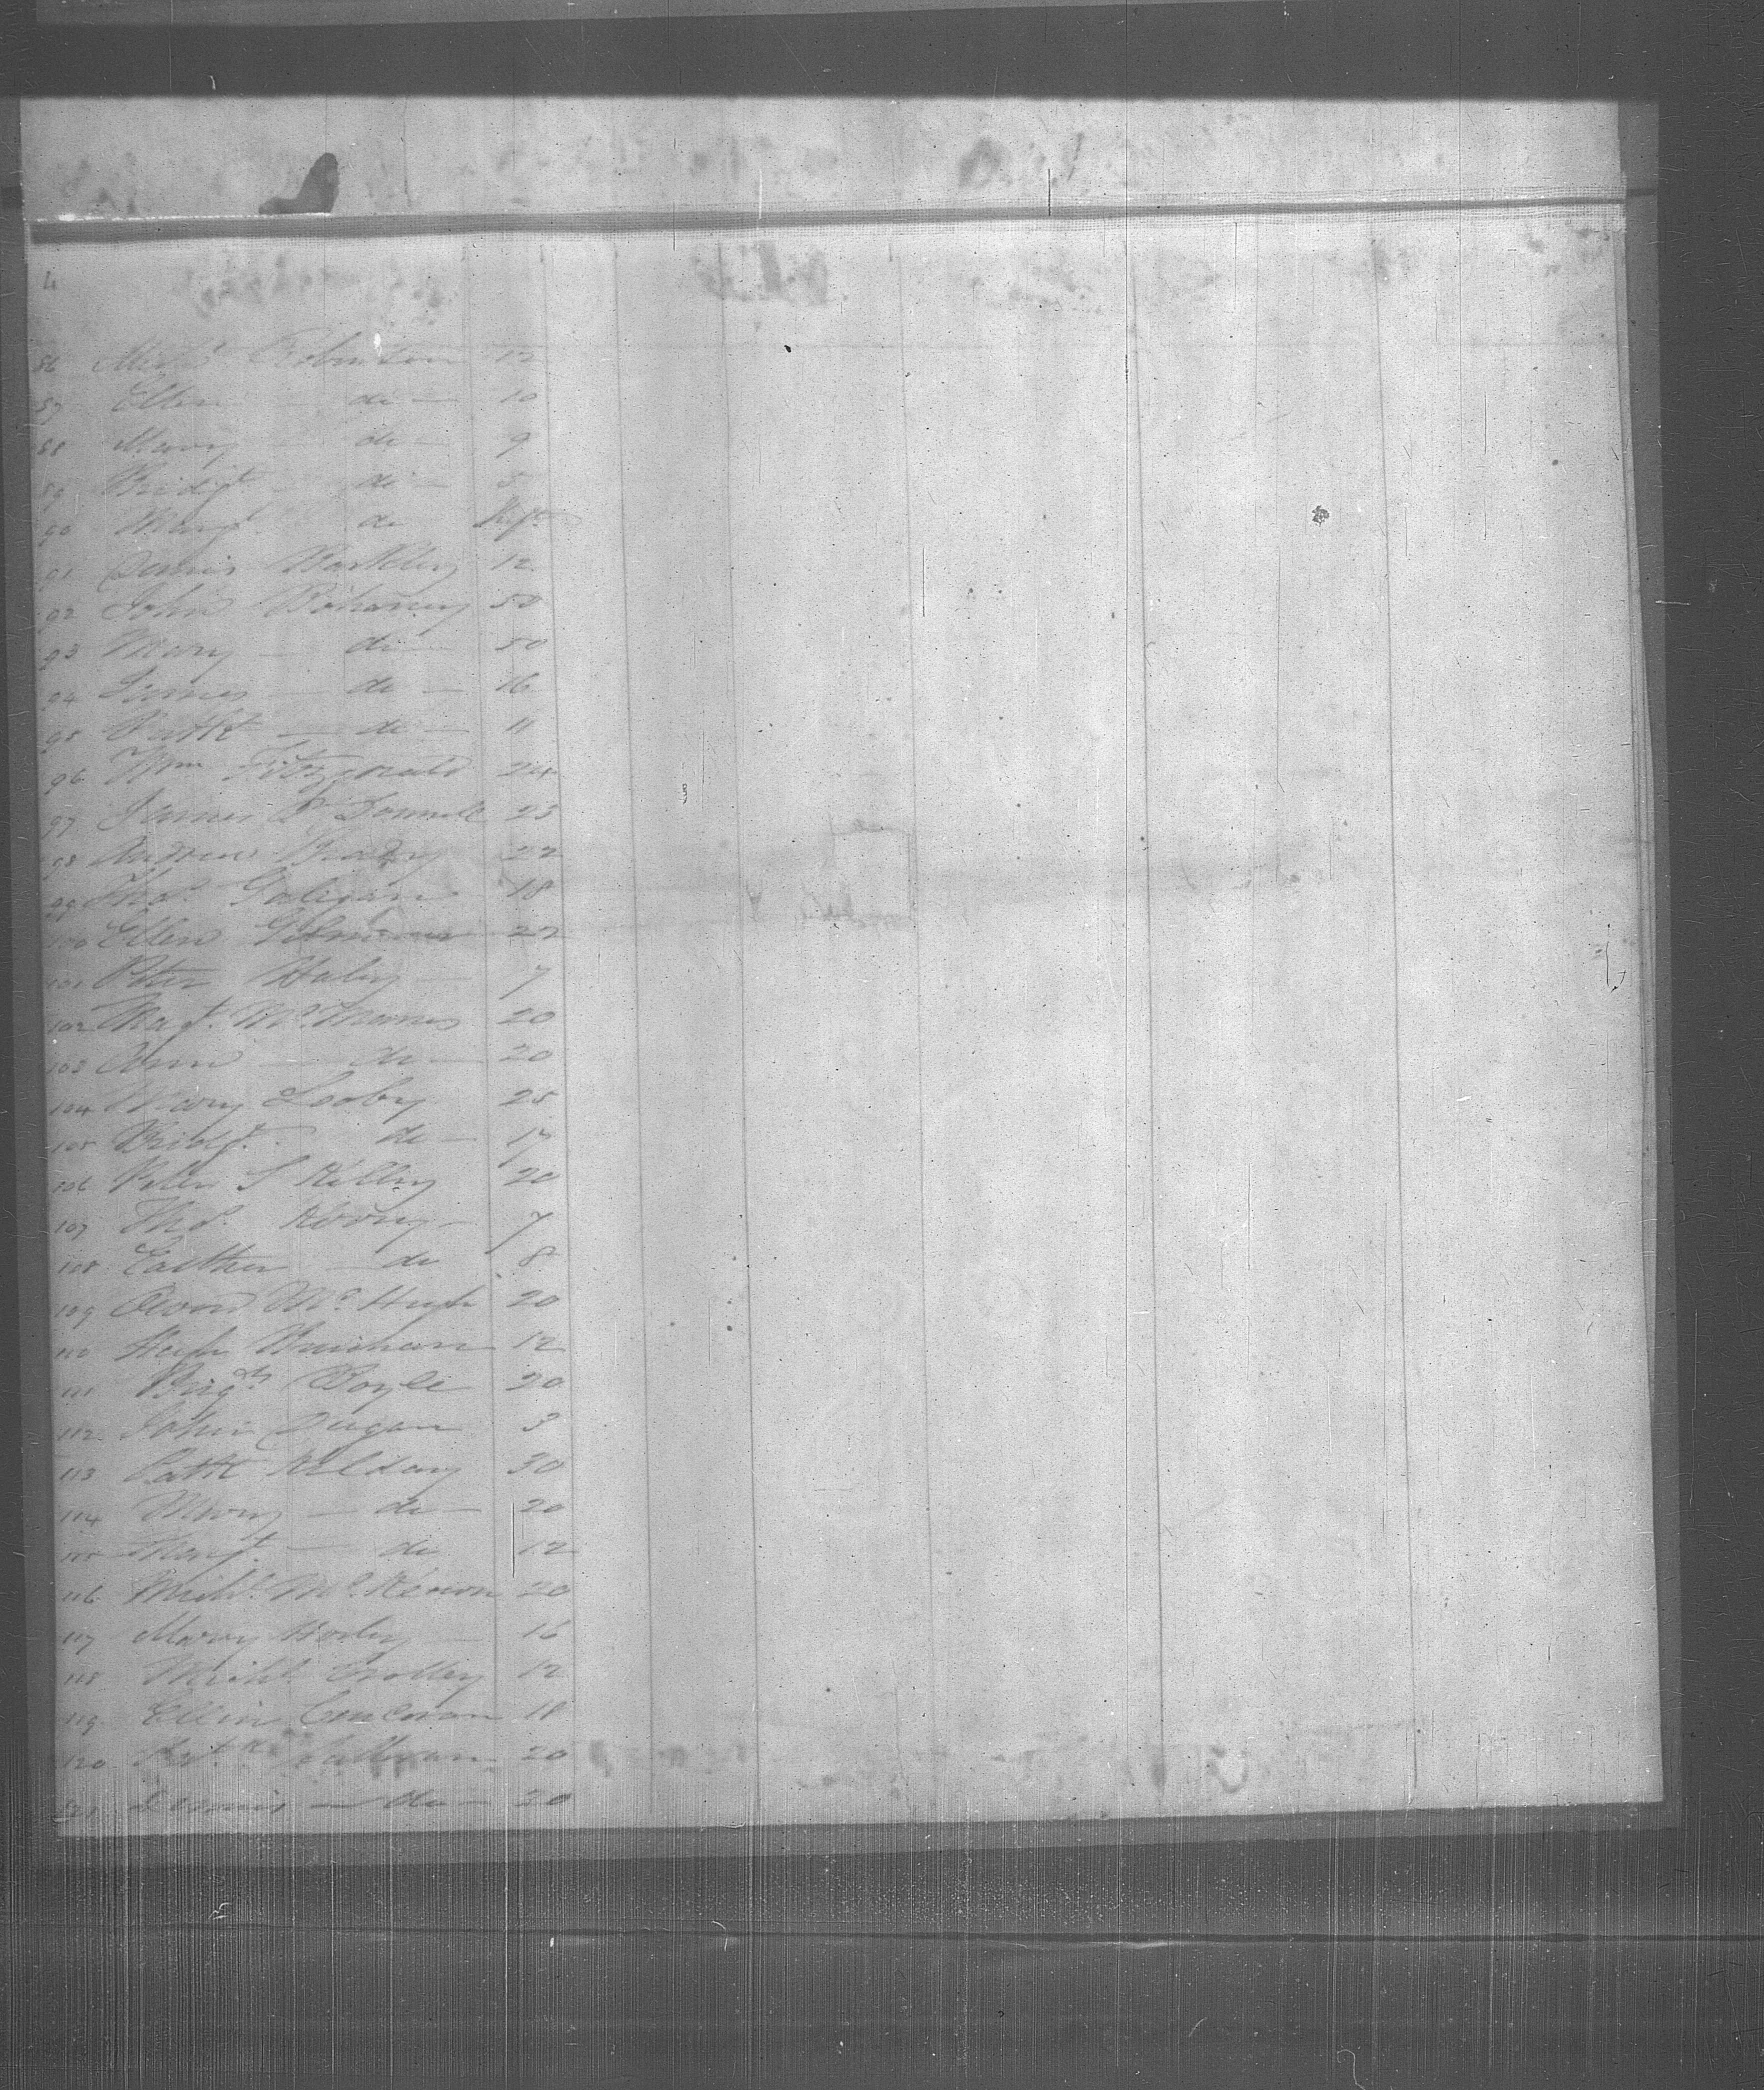 4
86 Mich.l Robinson 12
87 Ellen — do — 10
88 Mary — do — 9
89 Bridg.t — do — 5
90 Marg.t do Inft
91 Dennis Barkley 12
92 John Bohaney 50
93 Mary — do — 50
94 James — do — 16
95 Patk — do — 11
96 Wm Fitzgerald 24
97 James O Donnell 23
98 Andrew Brady 22
99 Tho.s Galigan 18
100 Ellen 22
101 Peter Haley — 7
102 Mag.t Mc Manus 20
103 Ann — do — 20
104 Mary Looby 25
105 Bridg.t do — 17
106 Peter S Kelley 20
107 Tho.s — 7
108 do 8
109 Owen Mc Hugh 20
110 Hugh 12
111 Boyle 20
112 John Dugan 3
113 Patk Kilday 30
114 Mary — do — 20
115 Marg.t — do 12
116 Mich.l Mc 20
117 Mary — 16
118 Mich.l 12
119 Ellen 18
120 Sullivan 20
121 Dennis — do — 20